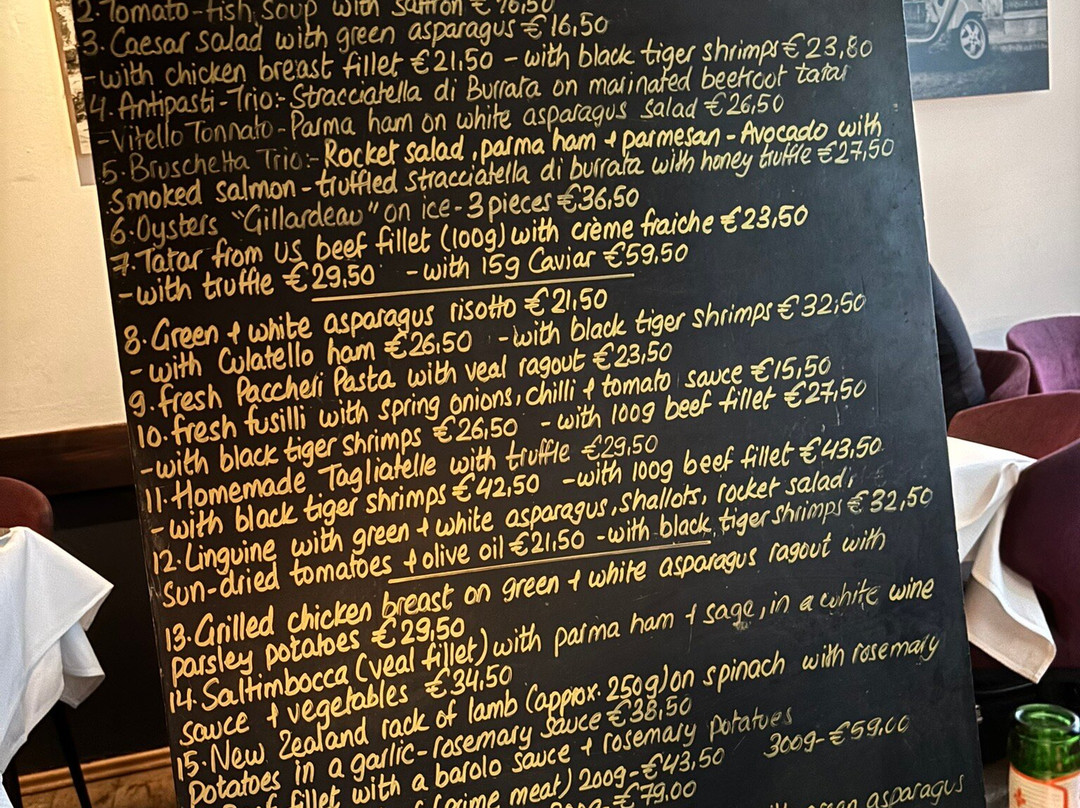 2. Tomato-fish soup with saffron €16,50
3. Caesar salad with green asparagus €16,50
-with chicken breast fillet €21,50 - with black tiger shrimps €23,80
4. Antipasti-Trio:- Stracciatella di Burrata on marinated beetroot tatar
-Vitello Tonnato - Parma ham on white asparagus salad €26,50
5. Bruschetta Trio:- Rocket salad, parma ham + parmesan - Avocado with
smoked salmon - truffled stracciatella di burrata with honey truffle €27,50
6. Oysters "Gillardeau" on ice - 3 pieces €36,50
7. Tatar from US beef fillet (100g) with crème fraiche €23,50
-with truffle €29,50 -with 15g Caviar €59,50
8. Green + white asparagus risotto €21,50
-with Culatello ham €26,50 -with black tiger shrimps €32,50
9. fresh Paccheri Pasta with veal ragout €23,50
10. fresh fusilli with spring onions, chilli + tomato sauce €15,50
-with black tiger shrimps €26,50 - with 100g beef fillet €27,50
11. Homemade Tagliatelle with truffle €29,50
-with black tiger shrimps €42,50 -with 100g beef fillet €43,50
12. Linguine with green + white asparagus, shallots, rocket salad,
sun-dried tomatoes + olive oil €21,50 -with black tiger shrimps €32,50
13. Grilled chicken breast on green + white asparagus ragout with
parsley potatoes €29,50
14. Saltimbocca (veal fillet) with parma ham + sage, in a white wine
sauce + vegetables €34,50
15. New Zealand rack of lamb (approx. 250g) on spinach with rosemary
Potatoes in a garlic-rosemary sauce €38,50
fillet with a barolo sauce + rosemary potatoes
(prime meat) 200g-€43,50 300g-€59,00
€79,00
asparagus